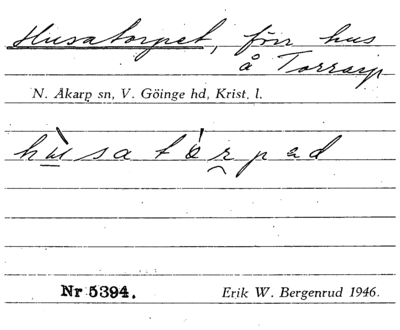 Husatorpet, förr hus
å Torrarp
N. Åkarp sn, V. Göinge hd, Krist. l.
hùsatórpad
Nr 5394. Erik W. Bergenrud 1946.